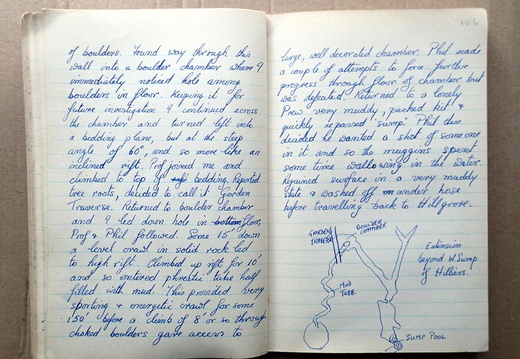 of boulders. Found way through this
wall into a boulder chamber where I
immediately noticed hole among
boulders in floor. Keeping it for
future investigation I continued across
the chamber and turned left into
a bedding plane, but at the steep
angle of 60°, and so more like an
inclined rift. Prof joined me and
climbed to top of bedding. Reported
tree roots, decided to call it Garden
Traverse. Returned to boulder chamber
and I led down hole in bottom floor,
Prof & Phil followed. Some 15' down
a level crawl in solid rock led
to high rift. Climbed up rift for 10'
and so entered phreatic tube half
filled with mud. This provided very
sporting & energetic crawl for some
150' before a climb of 8' or so through
choked boulders gave access to
large, well decorated chamber. Phil made
a couple of attempts to force further
progress through floor of chamber but
was defeated. Returned to a lonely
Prew very muddy, packed kit &
quickly repassed sump. Phil then
decided he wanted a shot of someone
in it and so the muggins spent
some time wallowing in the water.
Regained surface in a very muddy
state & washed off under hose
before travelling back to Hillgrove.
GARDEN
TRAVERSE
BOULDER
CHAMBER
MUD
TUBE
Extension
beyond W. Sump
of Hilliers.
SUMP POOL